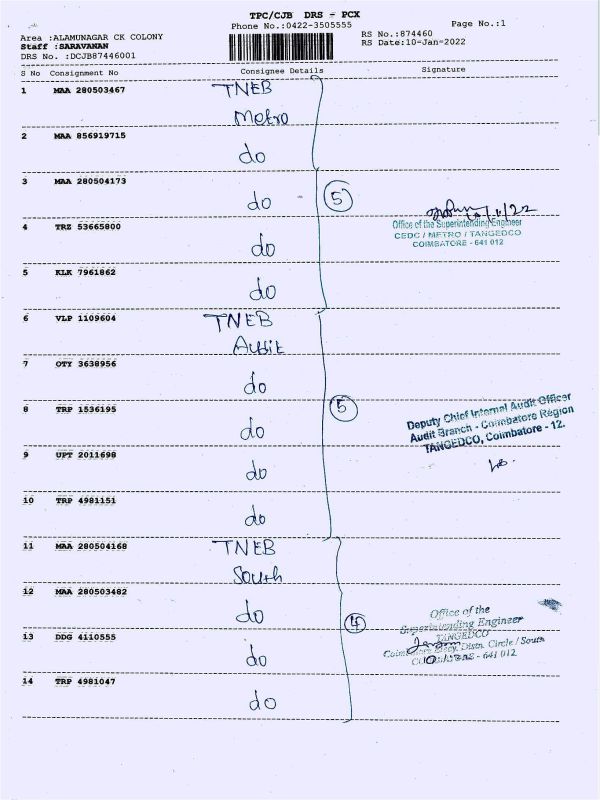 TPC/CJB DRS - PCX
Phone No.:0422-3505555
Page No.:1
Area :ALAMUNAGAR CK COLONY
Staff :SARAVANAN
DRS No. :DCJB87446001
RS No.:874460
RS Date:10-Jan-2022
S No Consignment No Consignee Details Signature
1 MAA 280503467 TNEB
Metro
2 MAA 856919715
do
3 MAA 280504173
do
5
10/1/22
Office of the Superintending Engineer
CEDC / METRO / TANGEDCO
COIMBATORE - 641 012
4 TRZ 53665800
do
5 KLK 7961862
do
6 VLP 1109604 TNEB
Audit
7 OTY 3638956
do
8 TRP 1536195
do
5
Deputy Chief Internal Audit Officer
Audit Branch - Coimbatore Region
TANGEDCO, Coimbatore - 12.
9 UPT 2011698
do
10 TRP 4981151
do
11 MAA 280504168 TNEB
South
12 MAA 280503482
do
4
Office of the
Superintending Engineer
TANGEDCO
Coimbatore Elecy. Distn. Circle / South
COIMBATORE - 641 012
13 DDG 4110555
do
14 TRP 4981047
do